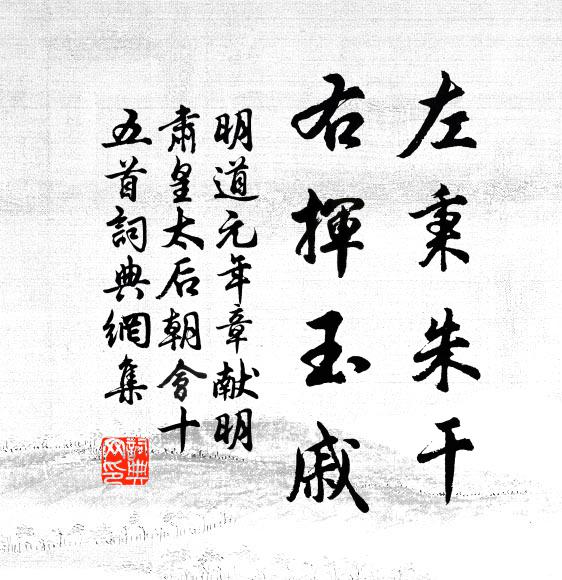 左秉朱干
右揮玉戚
明道元年章献明
肅皇太后朝會十
五首詞典網集
詞典
网印